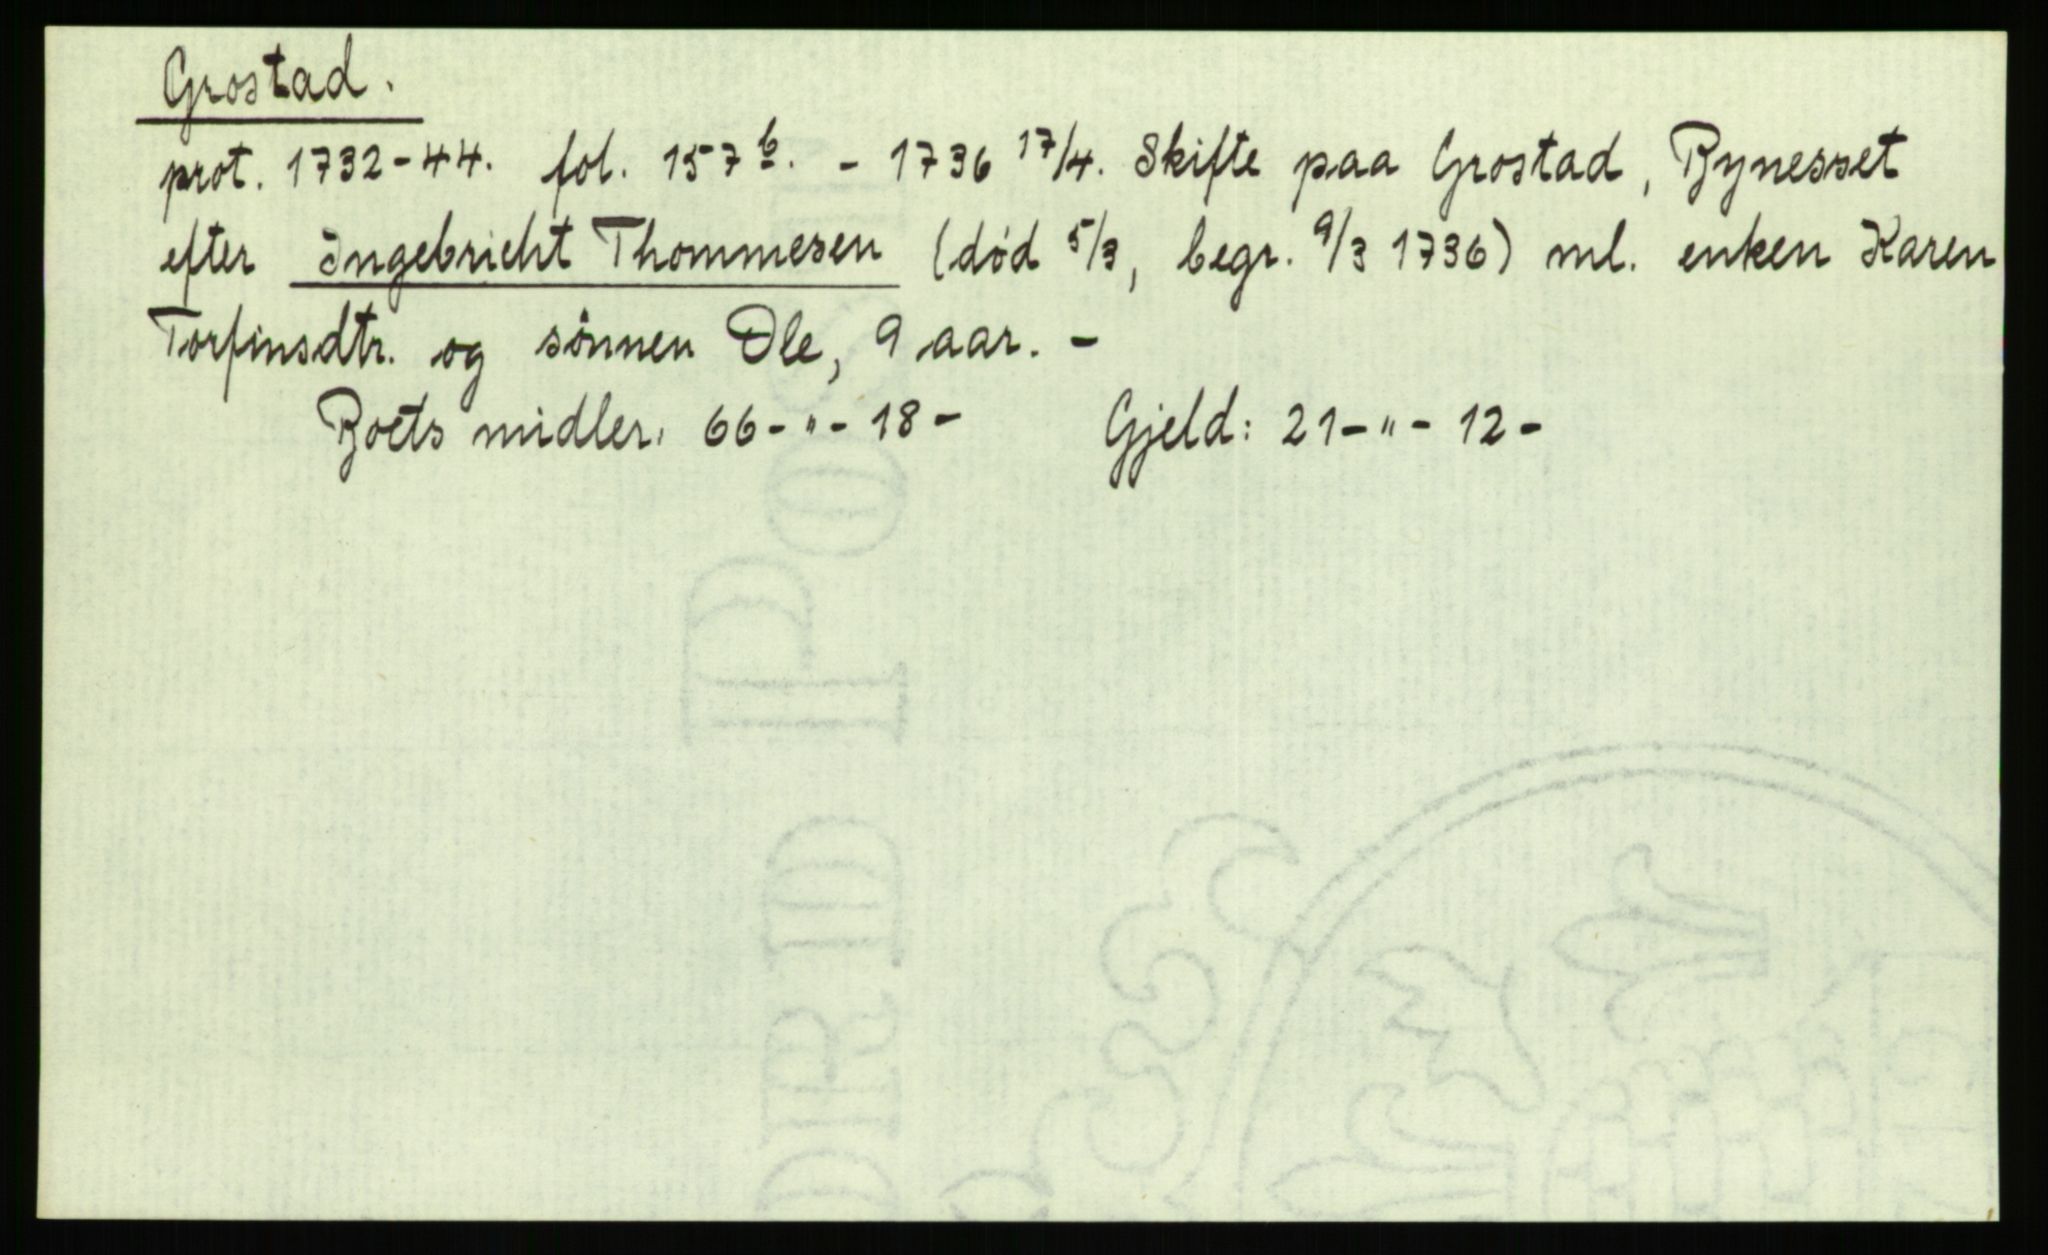 Grostad.
prot. 1732-44. fol. 157 b. - 1736 17/4. Skifte paa Grostad, Bynesset
efter Ingebricht Thommesen (död 5/3, begr. 9/3 1736) ml. enken Karen
Torfinsdtr. og sönnen Ole, 9 aar. -
Boets midler: 66-"-18- Gjeld: 21-"-12-